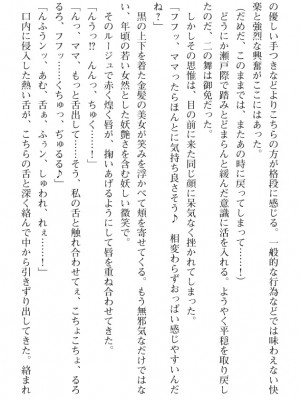 の優しい手つきなどよりこちらの方が格段に感じる。一般的な行為などでは味わえない快
楽と強烈な興奮がここにはあった。
(だめだ、このままでは、またあの時に戻ってしまって……!)
どうにか瀬戸際で踏みとどまらんと緩んだ意識に活を入れる。ようやく平穏を取り戻し
たのだ、二の舞は御免だった。
しかしその思惟は、目の前に来た同じ顔に呆気なく挫かれてしまった。
「フフッ、ママったらほんとに気持ち良さそう♪　相変わらずおっぱい感じやすいんだ
ね」
黒の上下を着た金髪の美女が笑みを浮かべて頬を寄せてくる。もう無邪気なだけではな
い、年頃の若い女然とした妖艶さを含む妖しい微笑で。
そのルージュで赤く煌く唇が、掬いあげるようにして唇を重ね合わせてきた。
「んうっ!?　んんっ、ちゅく……!」
「んっ、ママ、もっと舌出して……そう、私の舌と触れ合わせてぇ、こちょこちょ、るろ
るろ、フフッ……くちゅっ、ぢゅるる♪」
「んふぅンッ、あむ、るちゅぇ、ふぅン、しゅわれ、れぇっ」
口内に侵入した熱い舌が、こちらの舌と深く絡んで中から引きずり出してきた。絡まれ